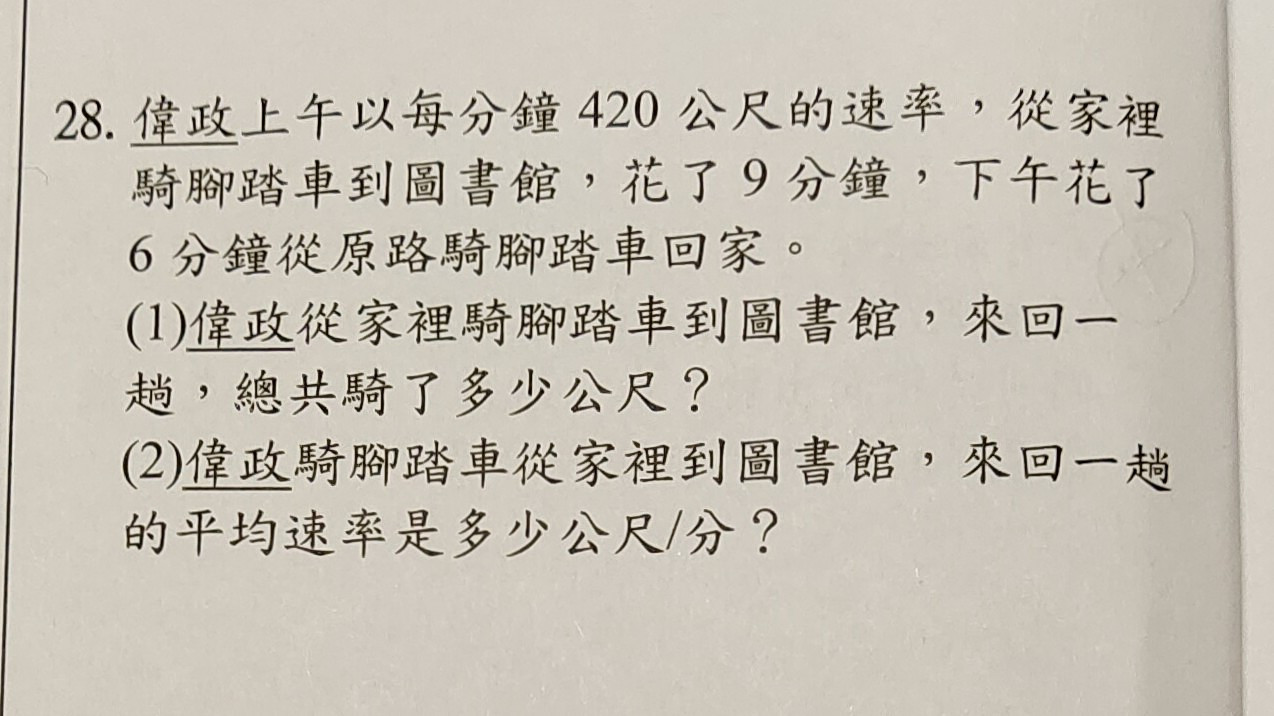 28. 偉政上午以每分鐘 420 公尺的速率，從家裡
騎腳踏車到圖書館，花了 9 分鐘，下午花了
6 分鐘從原路騎腳踏車回家。
(1)偉政從家裡騎腳踏車到圖書館，來回一
趟，總共騎了多少公尺？
(2)偉政騎腳踏車從家裡到圖書館，來回一趟
的平均速率是多少公尺/分？